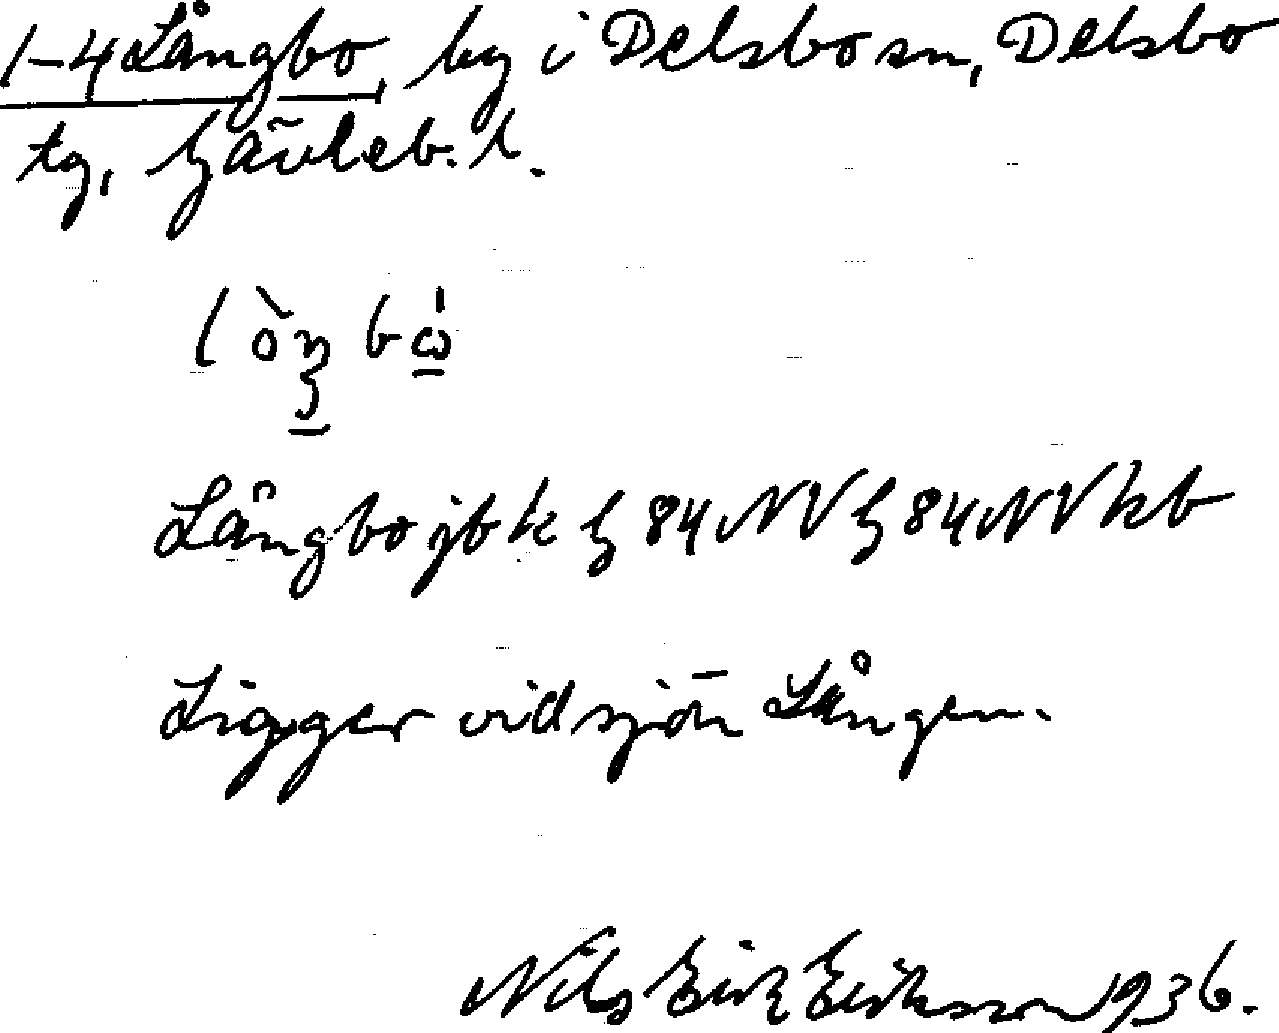 1-4 Långbo, by i Delsbo sn, Delsbo
tg, Gävleb. l.
Långbo jbk G 84 NV G 84 NV kb
Ligger vid sjön Lången.
Nils Eirik Eriksson 1936.